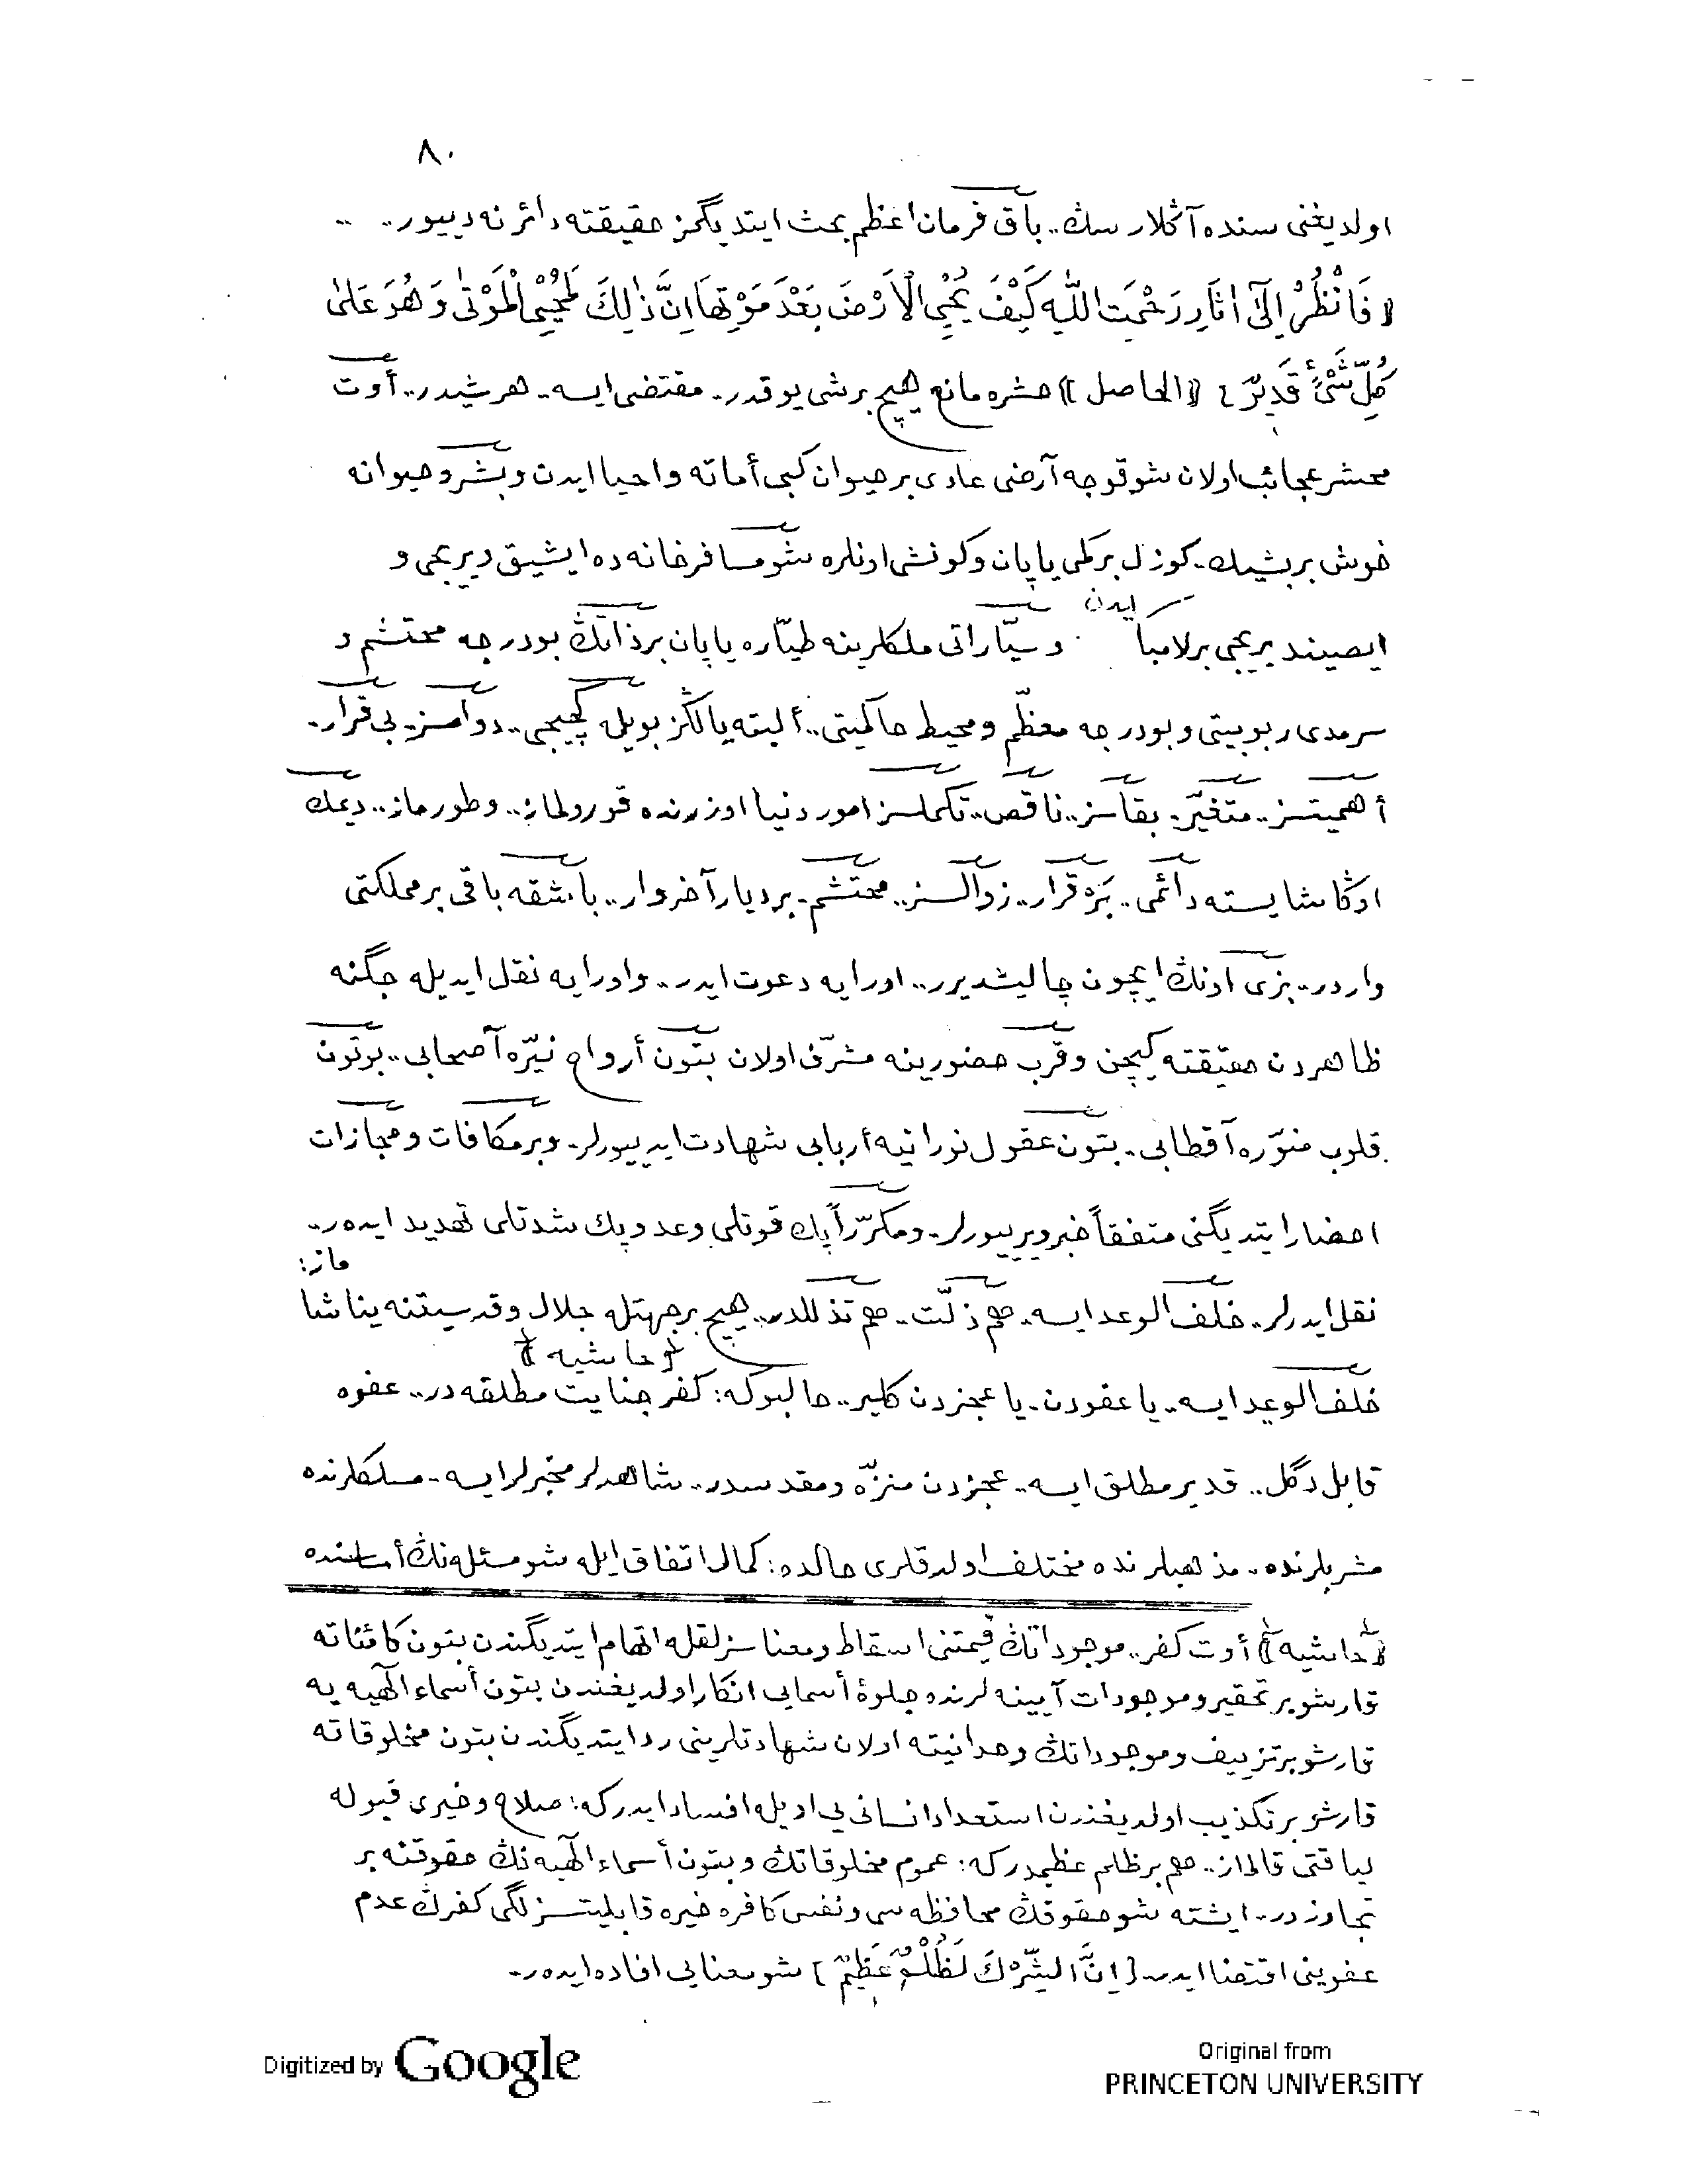 ٨٠
اولديغنى سنده آڭلارسڭ.. باق فرمان اعظم بحث ايتديگمز حقيقته دائر نه دييور.. ..
﴿ فَانْظُرْ اِلٰٓى اٰثَارِ رَحْمَتِ اللّٰهِ كَيْفَ يُحْيِى الْاَرْضَ بَعْدَ مَوْتِهَا اِنَّ ذٰلِكَ لَمُحْيِى الْمَوْتٰى وَ هُوَ عَلٰى
كُلِّ شَىْءٍ قَدِيرٌ ﴾ ﴿الحاصل﴾ حشره مانع هيچ برشى يوقدر. مقتضى ايسه. هر شيدر.. أوت
محشر عجائب اولان شو قوجه أرضى عادى بر حيوان كبى أماته و احيا ايدن و بشر و حيوانه
خوش بر بشيك. كوزل بر كمى ياپان و كونشى اونلره شو مسافرخانه ده ايشيق ويريجى و
ايصينديريجى بر لامبا ايدن و سيّاراتى ملكلرينه طيّاره ياپان بر ذاتڭ بو درجه محتشم و
سرمدى ربوبيتى و بو درجه معظّم و محيط حاكميتى.. ألبته يالڭز بويله كچيجى.. دوامسز. بى قرار.
أهميتسز.. متغيّر. بقاسز.. ناقص.. تكملسز امور دنيا اوزرنده قورولماز.. و طورماز.. ديمك
اوڭا شايسته دائمى.. بَرْقرار.. زوالسز.. محتشم. بر ديار آخر وار.. باشقه باقى بر مملكتى
واردر.. بزى اونڭ ايچون چاليشديرر.. اورايه دعوت ايدر.. و اورايه نقل ايديله جگنه
ظاهردن حقيقته كچن و قرب حضورينه مشرّف اولان بتون أرواح نيّره آصحابى.. بوتون
قلوب منوّره آقطابى.. بتون عقول نورانيه أربابى شهادت ايدييورلر. و بر مكافات و مجازات
احضار ايتديگنى متفقاً خبر ويرييورلر. و مكرّراً پك قوتلى وعد و پك شدتلى تهديد ايدر..
نقل ايدرلر.. خلف الوعد ايسه. هم ذلّت. هم تذللدر.. هيچ بر جهتله جلال و قدسيتنه يناشاماز:
﴿حاشيه﴾
خلف الوعيد ايسه. يا عفودن. يا عجزدن كلير.. حالبوكه: كفر جنايت مطلقه در.. عفوه
قابل دگل.. قدير مطلق ايسه. عجزدن منزّه و مقدسدر.. شاهدلر مخبرلر ايسه. مسلكلرنده
مشربلرنده. مذهبلرنده مختلف اولدقلرى حالده: كمال اتفاق ايله شو مسئله نڭ أساسنده
﴿حاشيه﴾ أوت كفر.. موجوداتڭ قيمتنى اسقاط و معناسزلقله اتهام ايتديگندن بتون كائناته
قارشو بر تحقير و موجودات آيينه لرنده جلوۀ أسمايى انكار اولديغندن بتون أسماء الٓهيه يه
قارشو بر تزييف و موجوداتڭ وحدانيته اولان شهادتلرينى رد ايتديگندن بتون مخلوقاته
قارشو بر تكذيب اولديغندن استعداد انسانى يى اويله افساد ايدر كه: صلاح و خيرى قبوله
لياقتى قالماز.. هم بر ظلم عظيمدر كه: عموم مخلوقاتڭ و بتون أسماء الٓهيه نڭ حقوقنه بر
تجاوزدر. ايشته شو حقوقڭ محافظه سى و نفس كافره خيره قابليتسزلگى كفرڭ عدم
عفوينى اقتضا ايدر. ﴿اِنَّ الشِّرْكَ لَظُلْمٌ عَظِيمٌ﴾ شو معنايى افاده ايدر.
Digitized by Google
Original from
PRINCETON UNIVERSITY